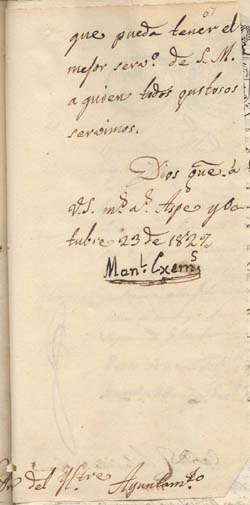 que pueda tener el
mejor serv.o de S. M.
a quien todos gustosos
servimos.
Dios gue. a
V.S. m.s a.s Aspe y Oc
tubre 23 de 1827
Man.l Cxem.s
del Yltre Ayuntam.to